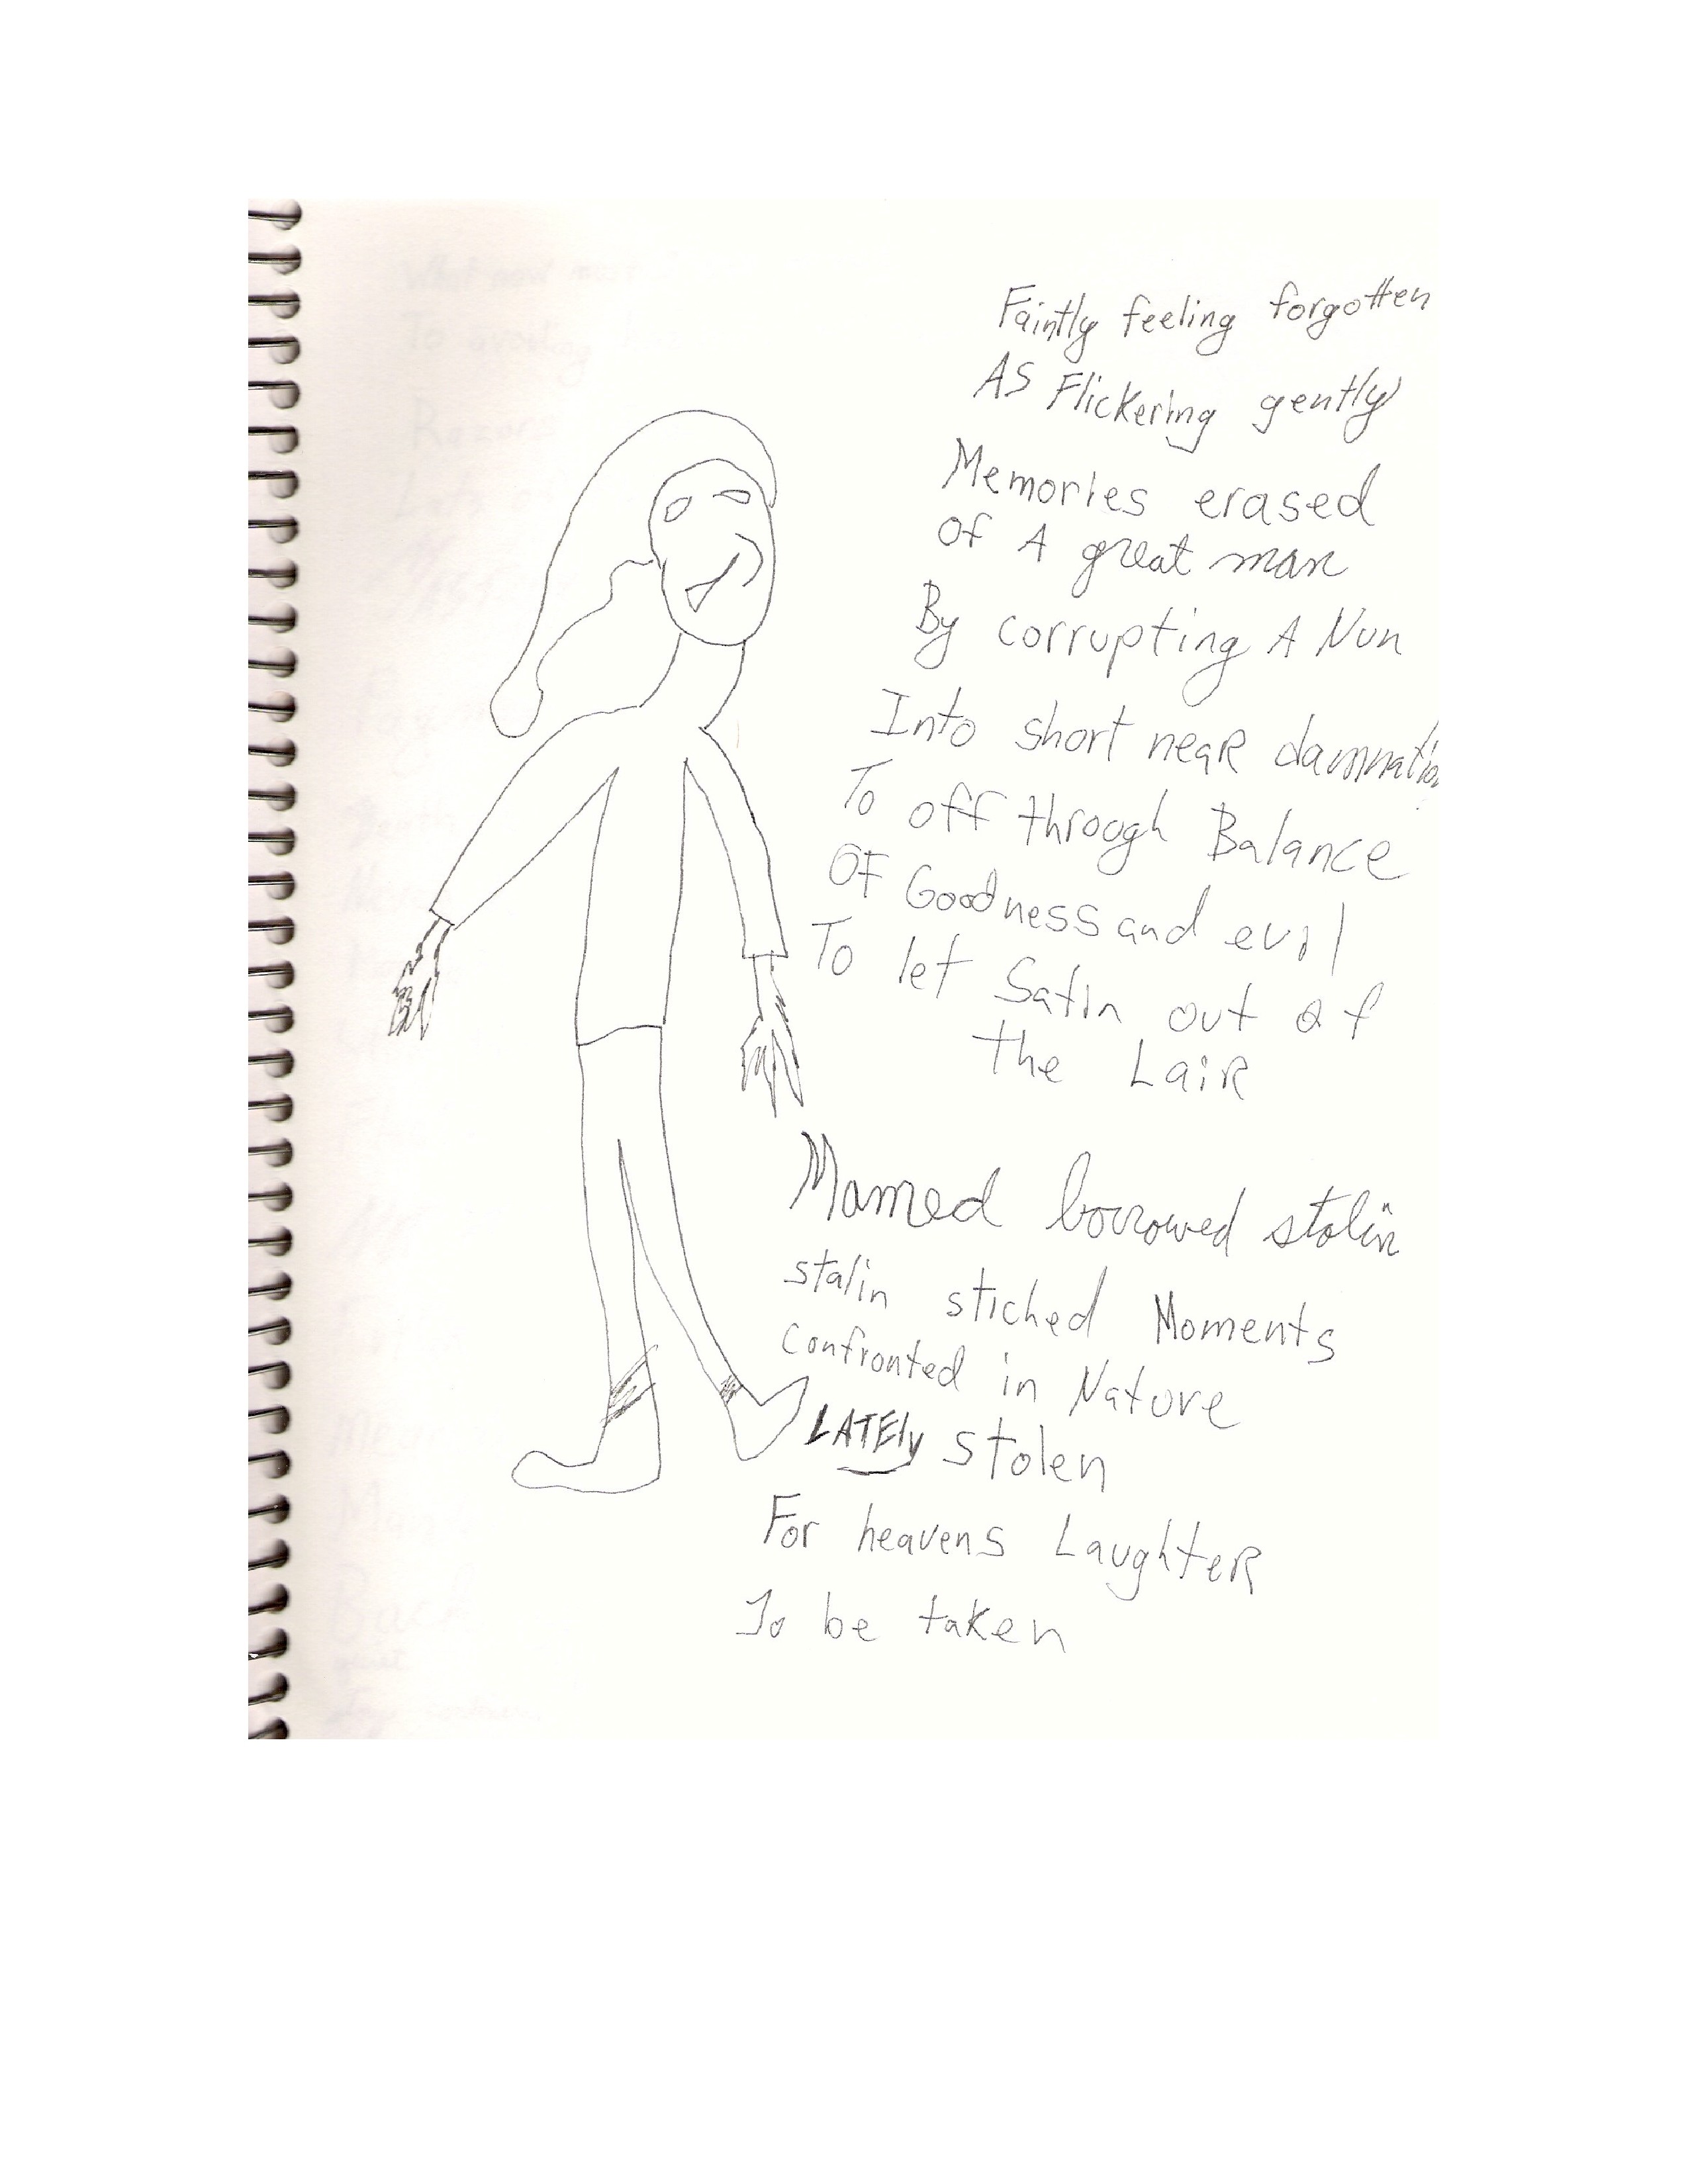 Faintly feeling forgotten
As Flickering gently
Memories erased
of A great man
By corrupting A Nun
Into short near damnation
To off through Balance
OF Goodness and evil
To let Satin out of
the LaiR
borrowed stolin
stalin stiched Moments
confronted in Nature
LATEly stolen
For heavens LaughteR
To be taken